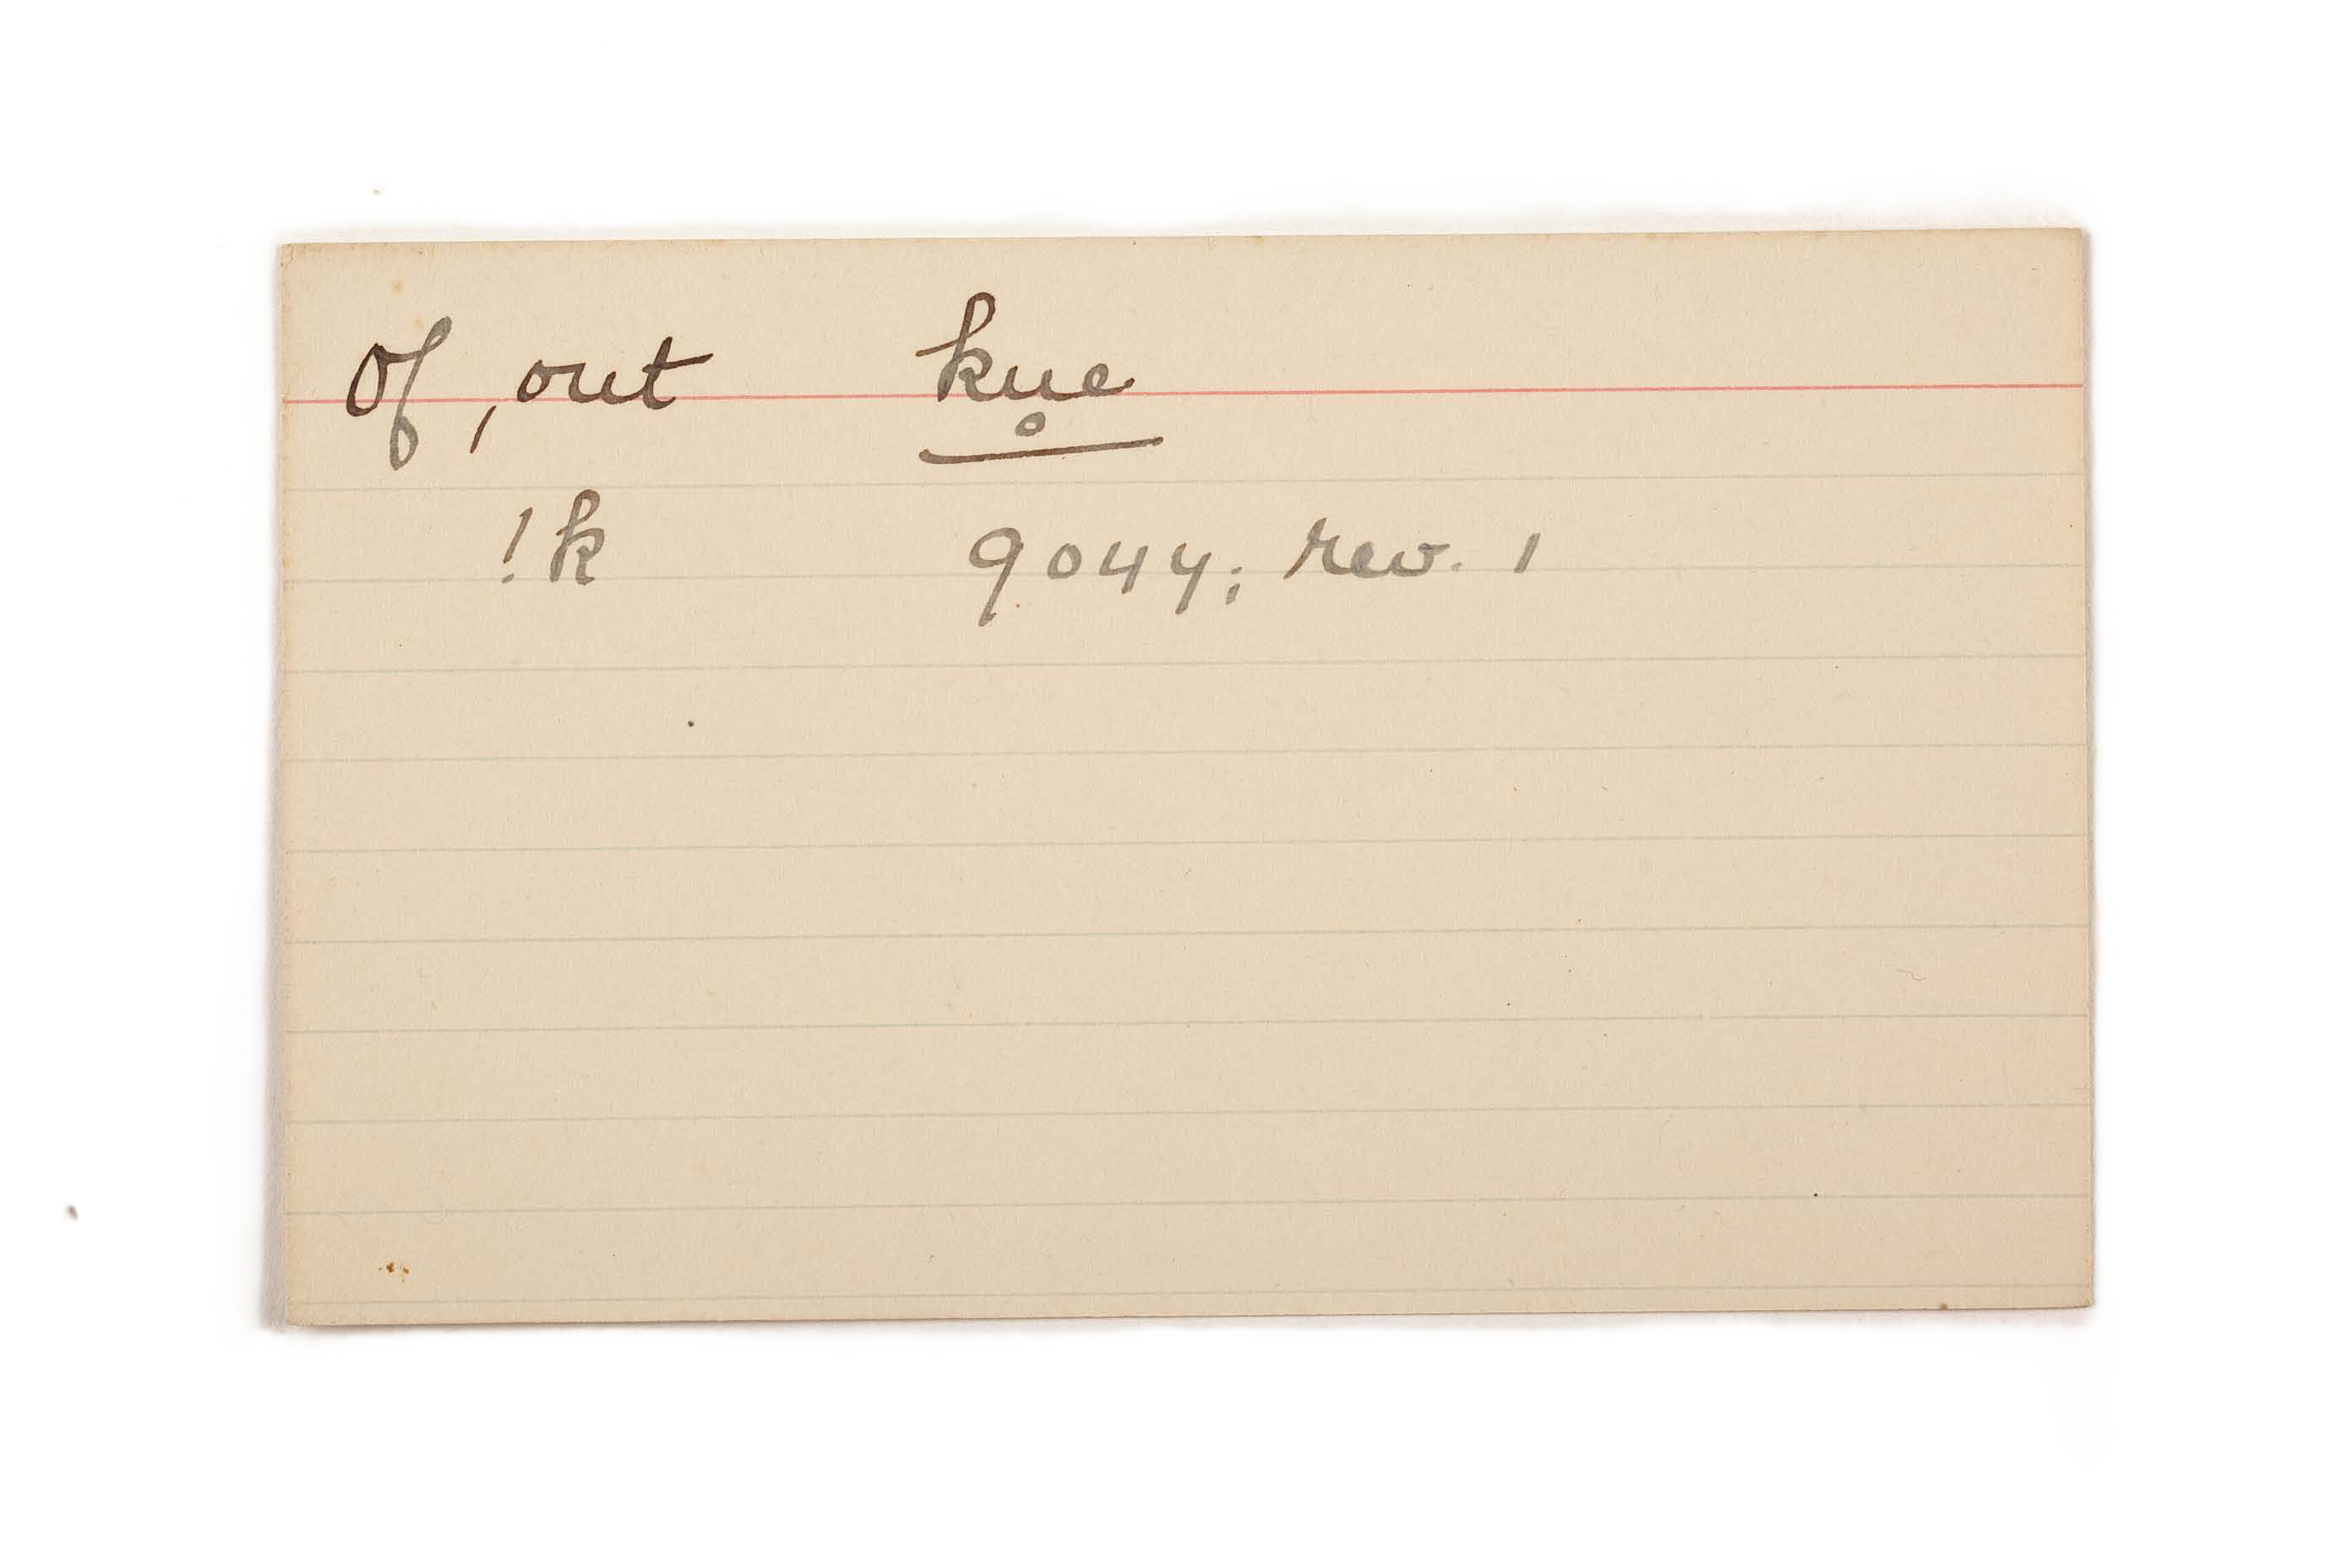 Of, out ku̥e
!k 9044; rev. 1